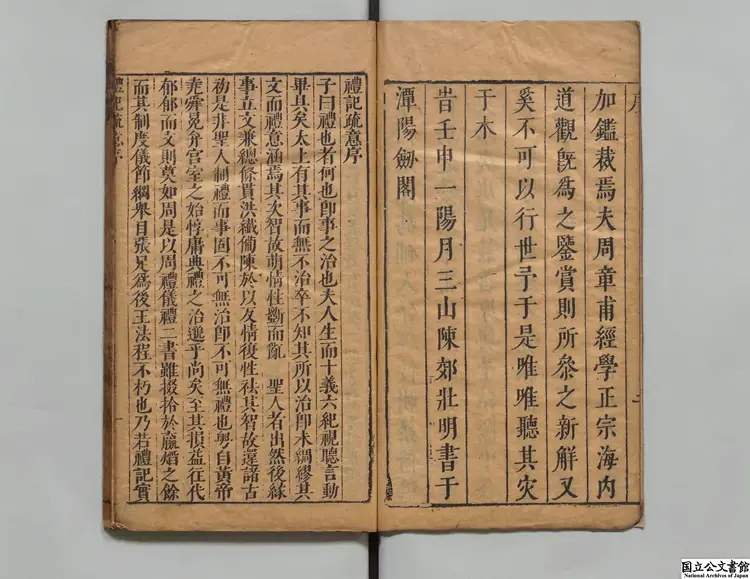 序 二
加鑑裁焉夫周章甫經學正宗海内
道觀旣爲之鑒賞則所叅之新解又
奚不可以行世予于是唯唯聽其灾
于木
旹壬申一陽月三山陳郊壯明書于
潭陽劒閣
禮記疏意序
子曰禮也者何也卽事之治也夫人生而十義六紀視聽言動
畢其矣太上有其事而無不治卒不知其所以治卽未綢繆其
文而禮意涵焉其次智故萌情性鬭而亂 聖人者出然後緣
事立文兼總條貫洪纖備陳於以友情復性祛其智故還諸古
初是非聖人制禮而事固不可無治卽不可無禮也粤自黃帝
堯舜冕弁宮室之始惇庸典禮之治邈乎尚矣至其損益徃代
郁郁而文則莫如周是以周禮儀禮二書雖掇拾於嬴燼之餘
而其制度儀節綱舉目張足爲後王法程不朽也乃若禮記實
禮記疏意序 一
国立公文書館
National Archives of Japan